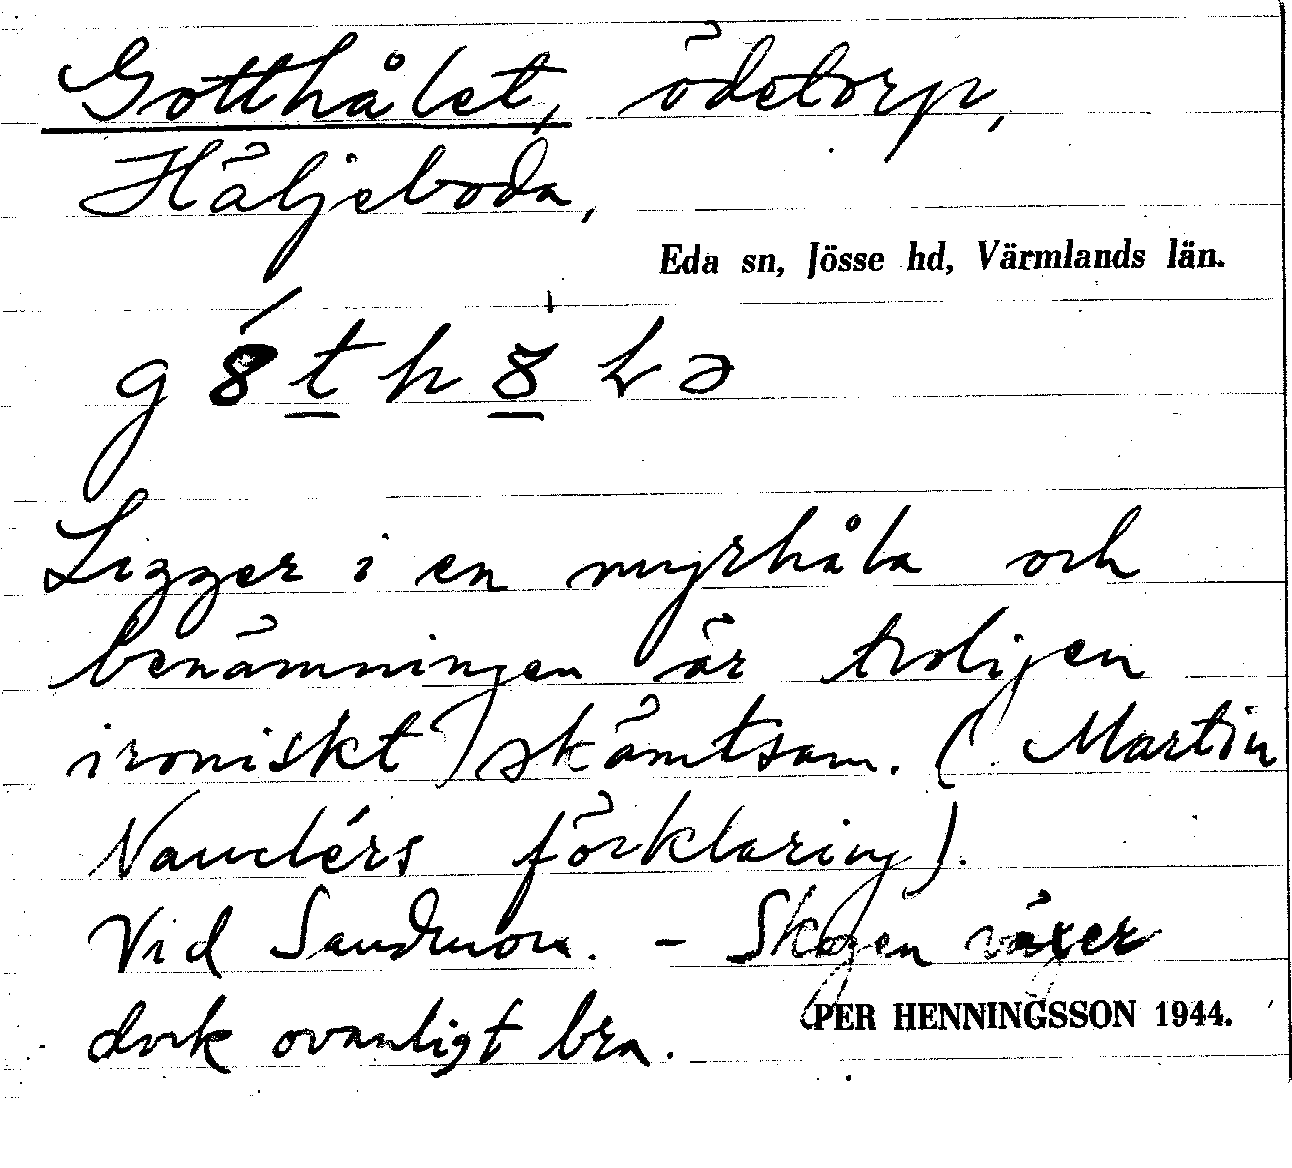 Gotthålet, ödetorp,
Häljeboda,
Eda sn, Jösse hd, Värmlands län.
g8th8lə
Ligger i en myrhåla och
benämningen är troligen
ironiskt) skämtsam. (Martin
Nauclérs förklaring).
Vid Sandmon. – Skogen växer
dock ovanligt bra.
PER HENNINGSSON 1944.